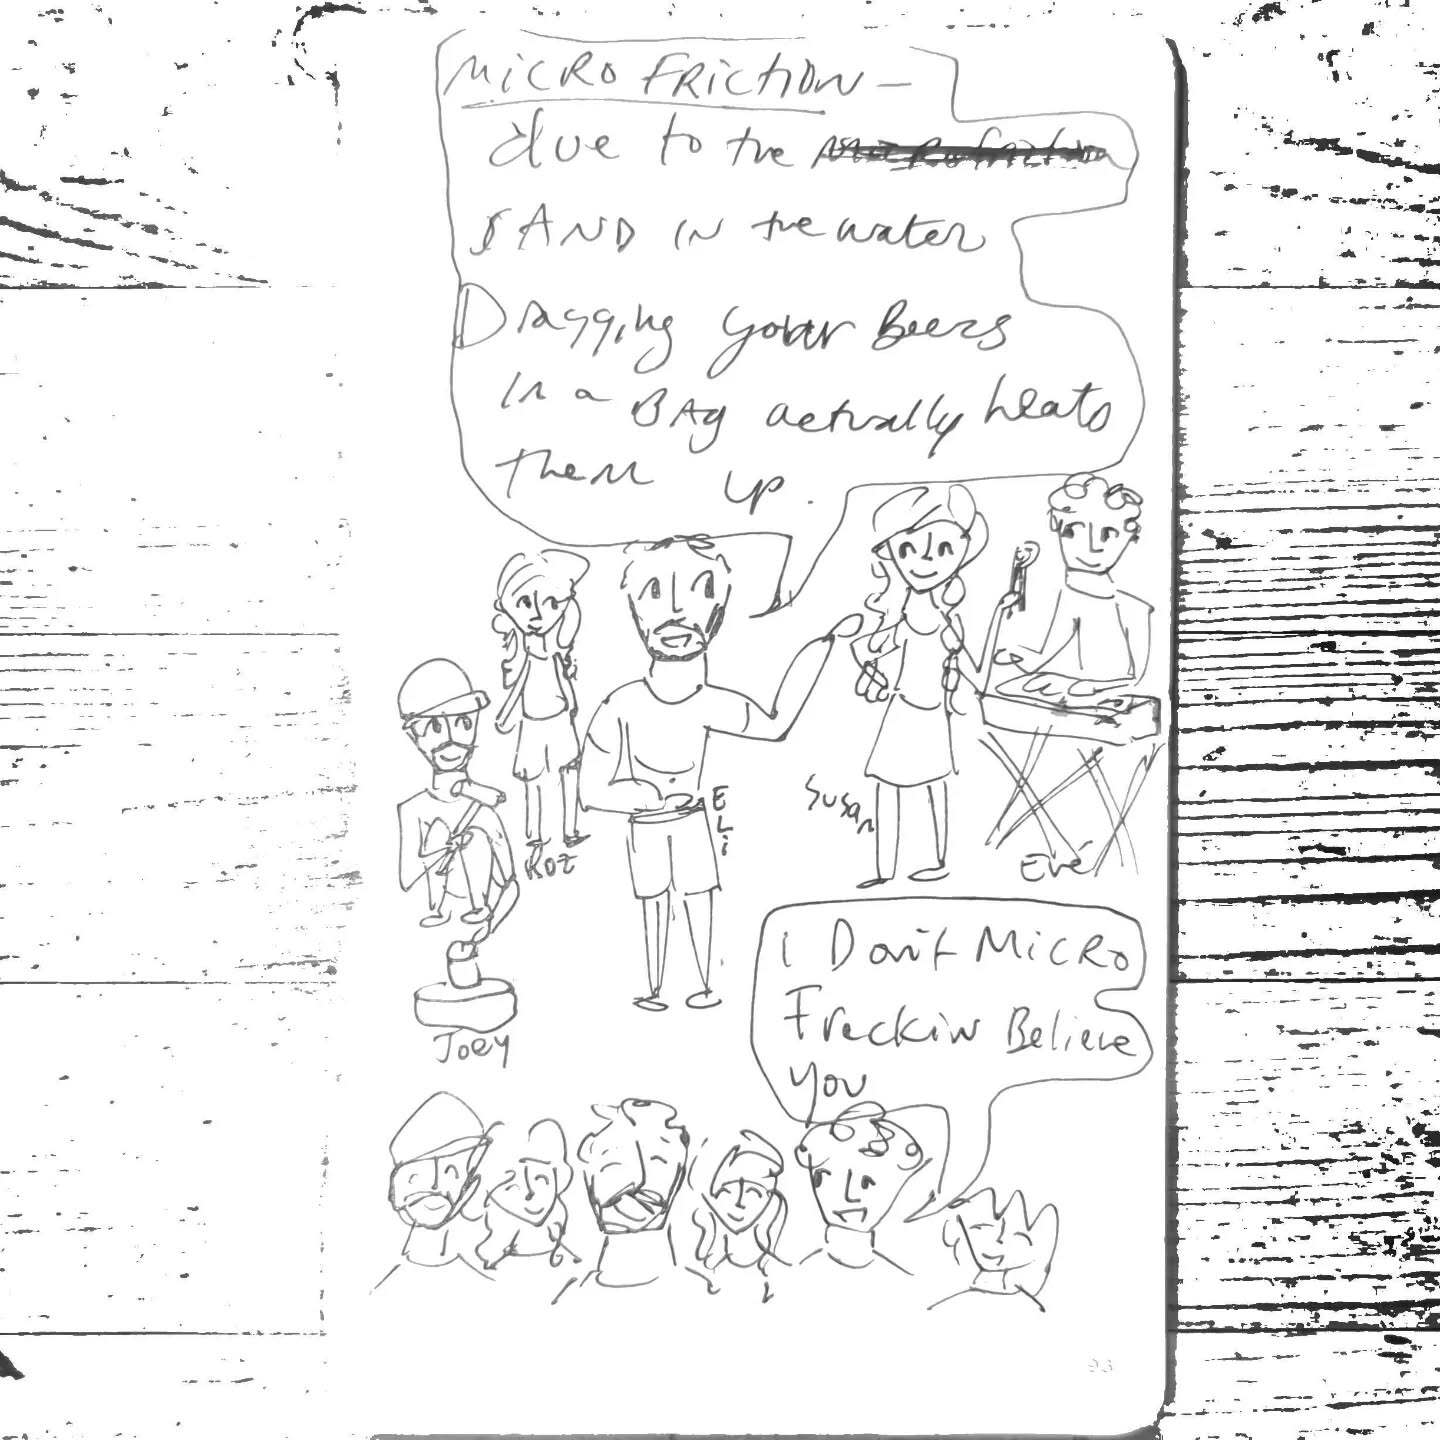 MICRO FRICTION —
due to the
SAND IN the water
Dragging your Beers
In a BAg actually heats
them up.
Roz
ELi
Susan
Evé
Joey
I Don't MICRO
Freckin Believe
you